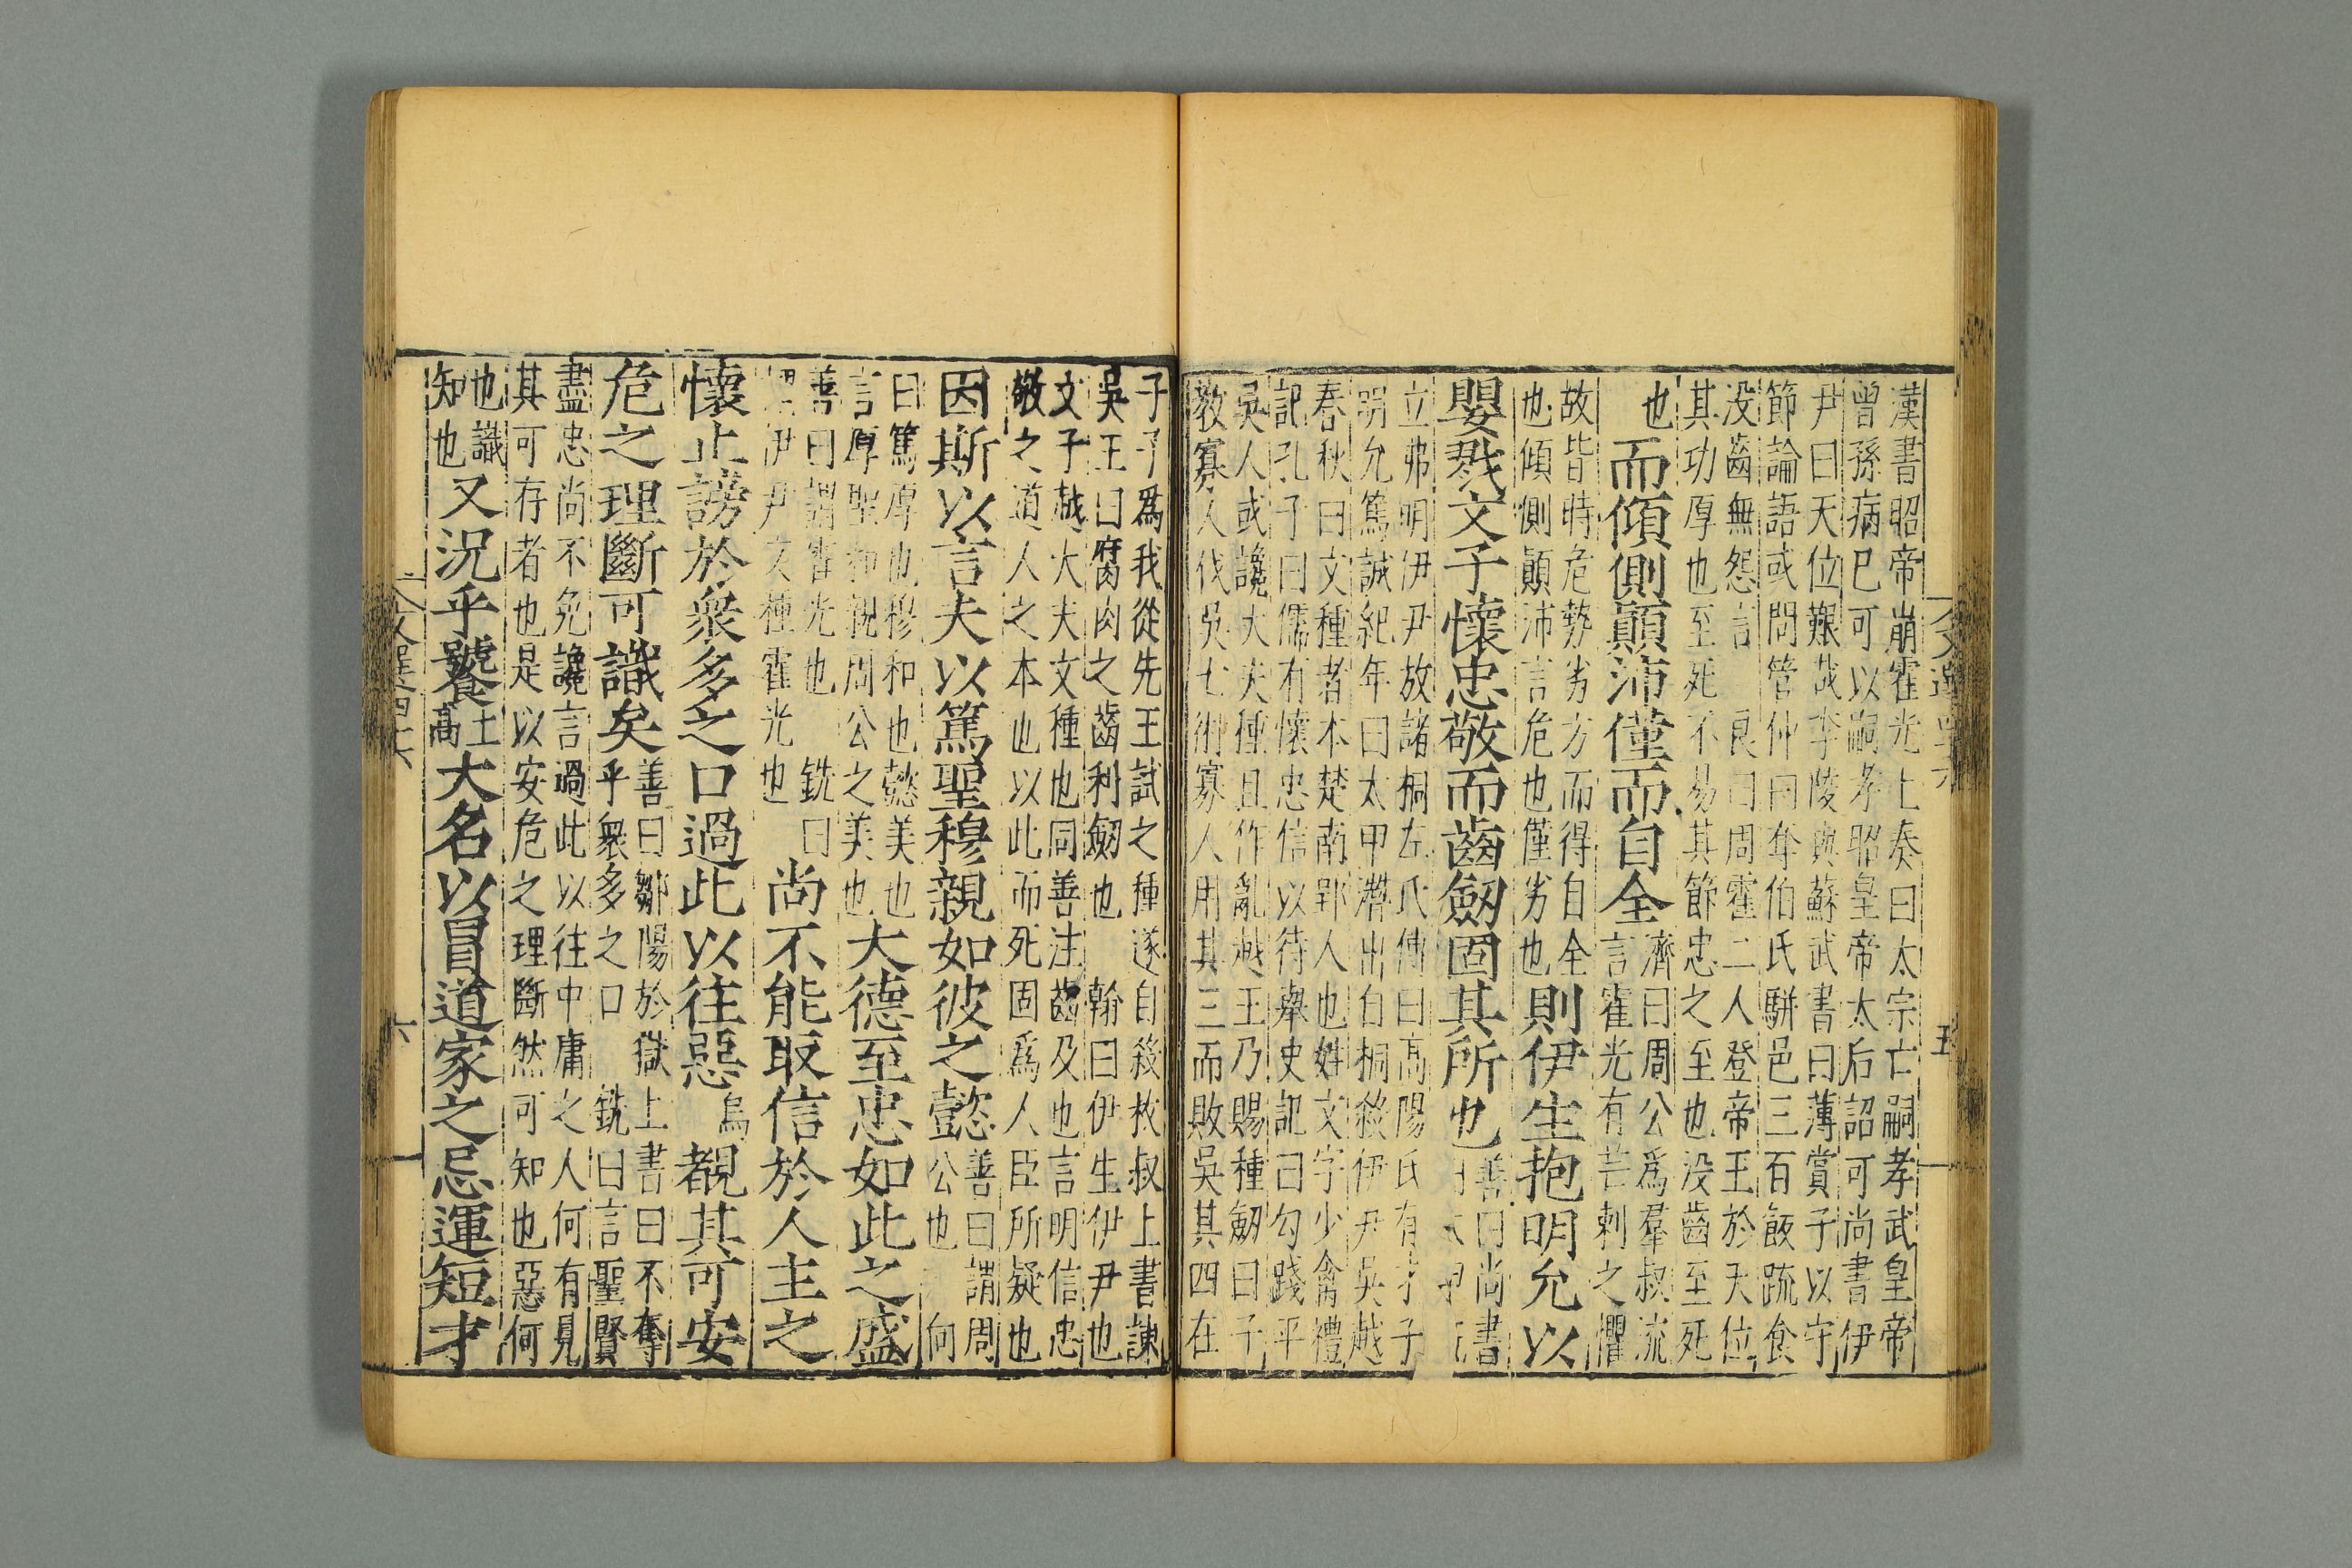 漢書昭帝崩霍光上奏曰太宗亡嗣孝武皇帝
曾孫病已可以嗣孝昭皇帝太后詔可尚書伊
尹曰天位艱哉李陵與蘇武書曰薄賞子以守
節論語或問管仲曰奪伯氏駢邑三百飯蔬食
没齒無怨言 良曰周霍二人登帝王於天位
其功厚也至死不易其節忠之至也没齒至死
也
而傾側顛沛僅而自全
濟曰周公爲羣叔流
言霍光有芒刺之懼
故皆時危勢劣方而得自全
也傾側顛沛言危也僅劣也
則伊生抱明允以
嬰戮文子懷忠敬而齒劒固其所也
善曰尚書
立弗明伊尹放諸桐左氏傳曰高陽氏有才子
明允篤誠紀年曰太甲潛出自桐殺伊尹吳越
春秋曰文種者本楚南郢人也姓文字少禽禮
記孔子曰儒有懷忠信以待舉史記曰勾踐平
吳人或讒大夫種且作亂越王乃賜種劒曰子
教寡人伐吳七術寡人用其三而敗吳其四在
文選四六
五
子子爲我從先王試之種遂自殺枚叔上書諫
吳王曰腐肉之齒利劒也 翰曰伊生伊尹也
文子越大夫文種也同善注齒及也言明信忠
敬之道人之本也以此而死固爲人臣所疑也
因斯以言夫以篤聖穆親如彼之懿
善曰謂周
公也 向
曰篤厚也穆和也懿美也
言厚聖和親周公之美也
大德至忠如此之盛
善曰謂霍光也 銑曰
伊尹文種霍光也
尚不能取信於人主之
懷止謗於衆多之口過此以往惡
烏
覩其可安
危之理斷可識矣
善曰鄒陽於獄上書曰不奪
乎衆多之口 銑曰言聖賢
盡忠尚不免讒言過此以往中庸之人何有見
其可存者也是以安危之理斷然可知也惡何
也識
知也
又況乎饕
土
高
大名以冒道家之忌運短才
六